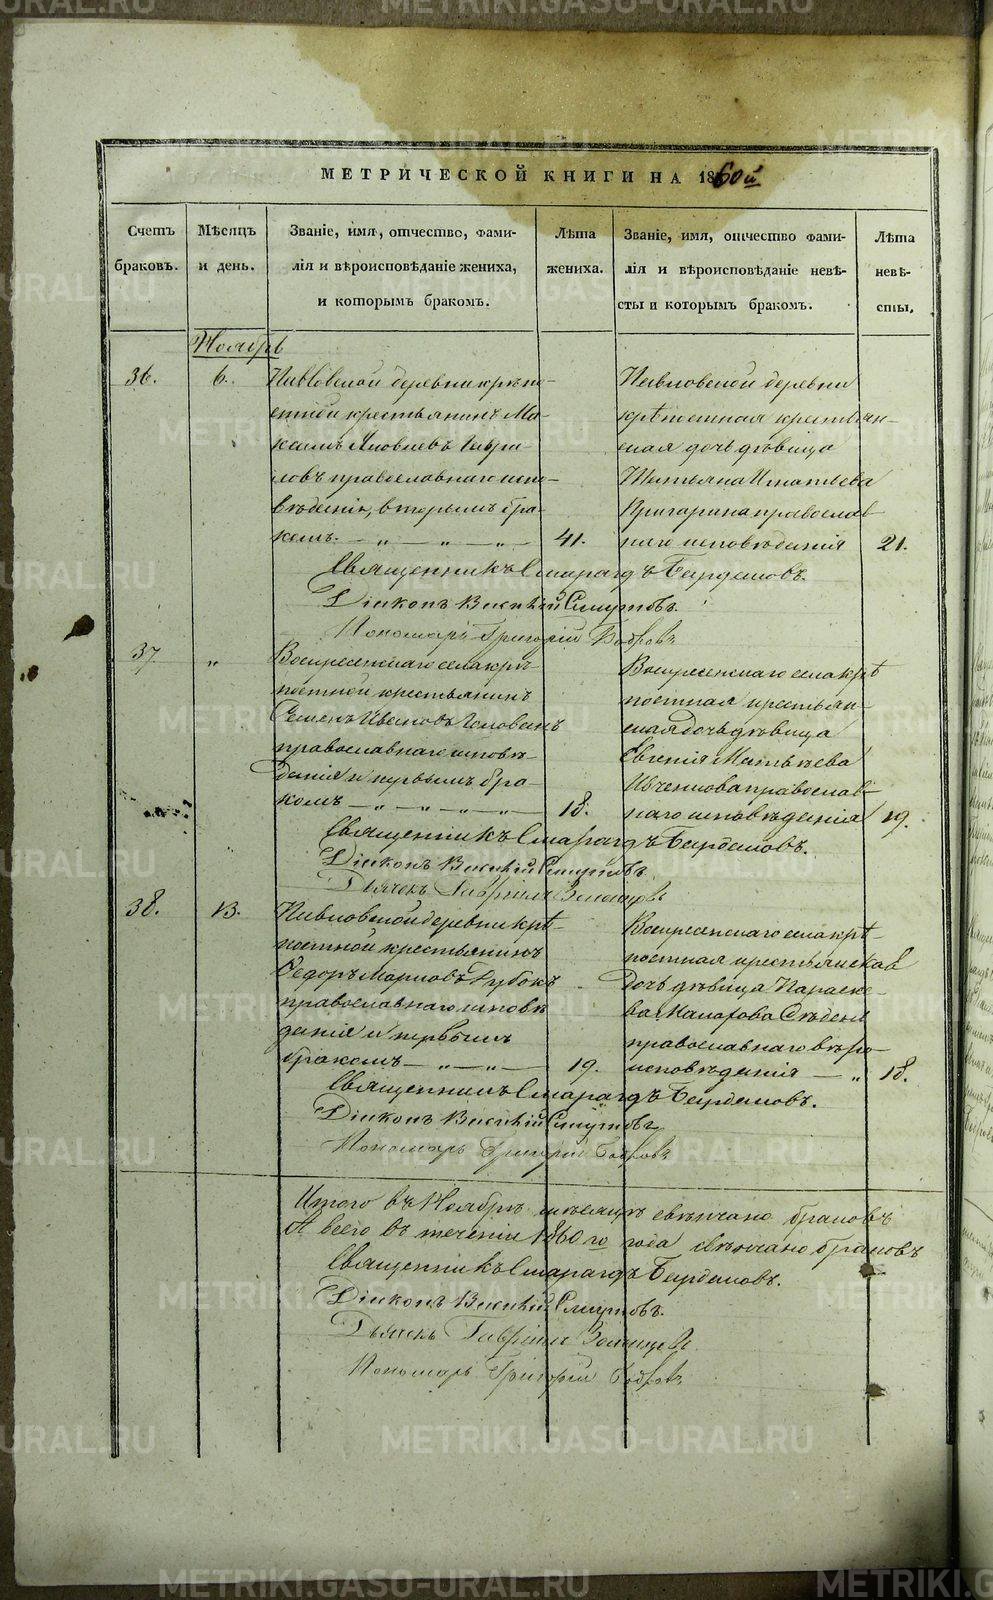 МЕТРИЧЕСКОЙ КНИГИ НА 1860й
Счетъ браковъ.
Мѣсяцъ и день.
Званіе, имя, отчество, фами-
лія и вѣроисповѣданіе жениха,
и которымъ бракомъ.
Лѣта жениха.
Званіе, имя, отчество фами-
лія и вѣроисповѣданіе невѣ-
сты и которымъ бракомъ.
Лѣта невѣ-
сты.
Ноябрь
36.
6.
Павловской деревни крѣпо-
стной крестьянинъ Ма-
ксимъ Яковлевъ Гаври-
ловъ православнаго испо-
вѣданія, вторымъ бра-
комъ. — „ — „ — „ —
41.
Павловской деревни
крѣпостная крестьян-
ская дочь дѣвица
Татьяна Игнатьева
православ
наго исповѣданія
21.
Священникъ Смарагдъ Бирдемовъ.
Діаконъ Василій Смирновъ.
Пономарь Григорій Бобровъ
37
„
Воскресенскаго села крѣ-
постной крестьянинъ
Семенъ Ивановъ Головинъ
православнаго исповѣ
данія и первымъ бра-
комъ — „ — „ — „ —
18.
Воскресенскаго села крѣ
постная крестьян-
ская дочь дѣвица
Евгенія Матвѣева
православ-
наго исповѣданія
19.
Священникъ Смарагдъ Бирдемовъ.
Діаконъ Василій Смирновъ
Дьячекъ Гавріилъ
38.
13.
Павловской деревни крѣ-
постной крестьянинъ
Ѳедоръ Марковъ
православнаго исповѣ
данія и первымъ
бракомъ — „ — „ —
19.
Воскресенскаго села крѣ-
постная крестьянская
Дочь дѣвица Параске-
ва Макарова
православнаго вѣро-
исповѣданія — „
18.
Священникъ Смарагдъ Бирдемовъ.
Діаконъ Василій Смирновъ
Пономарь Григорій Бобровъ
Итого въ Ноябрѣ мѣсяцѣ свѣнчано браковъ
А всего въ теченіи 1860 го года свѣнчано браковъ
Священникъ Смарагдъ Бирдемовъ.
Діаконъ Василій Смирновъ.
Дьячекъ Гавріилъ
Пономарь Григорій Бобровъ
METRIKI.GASO-URAL.RU